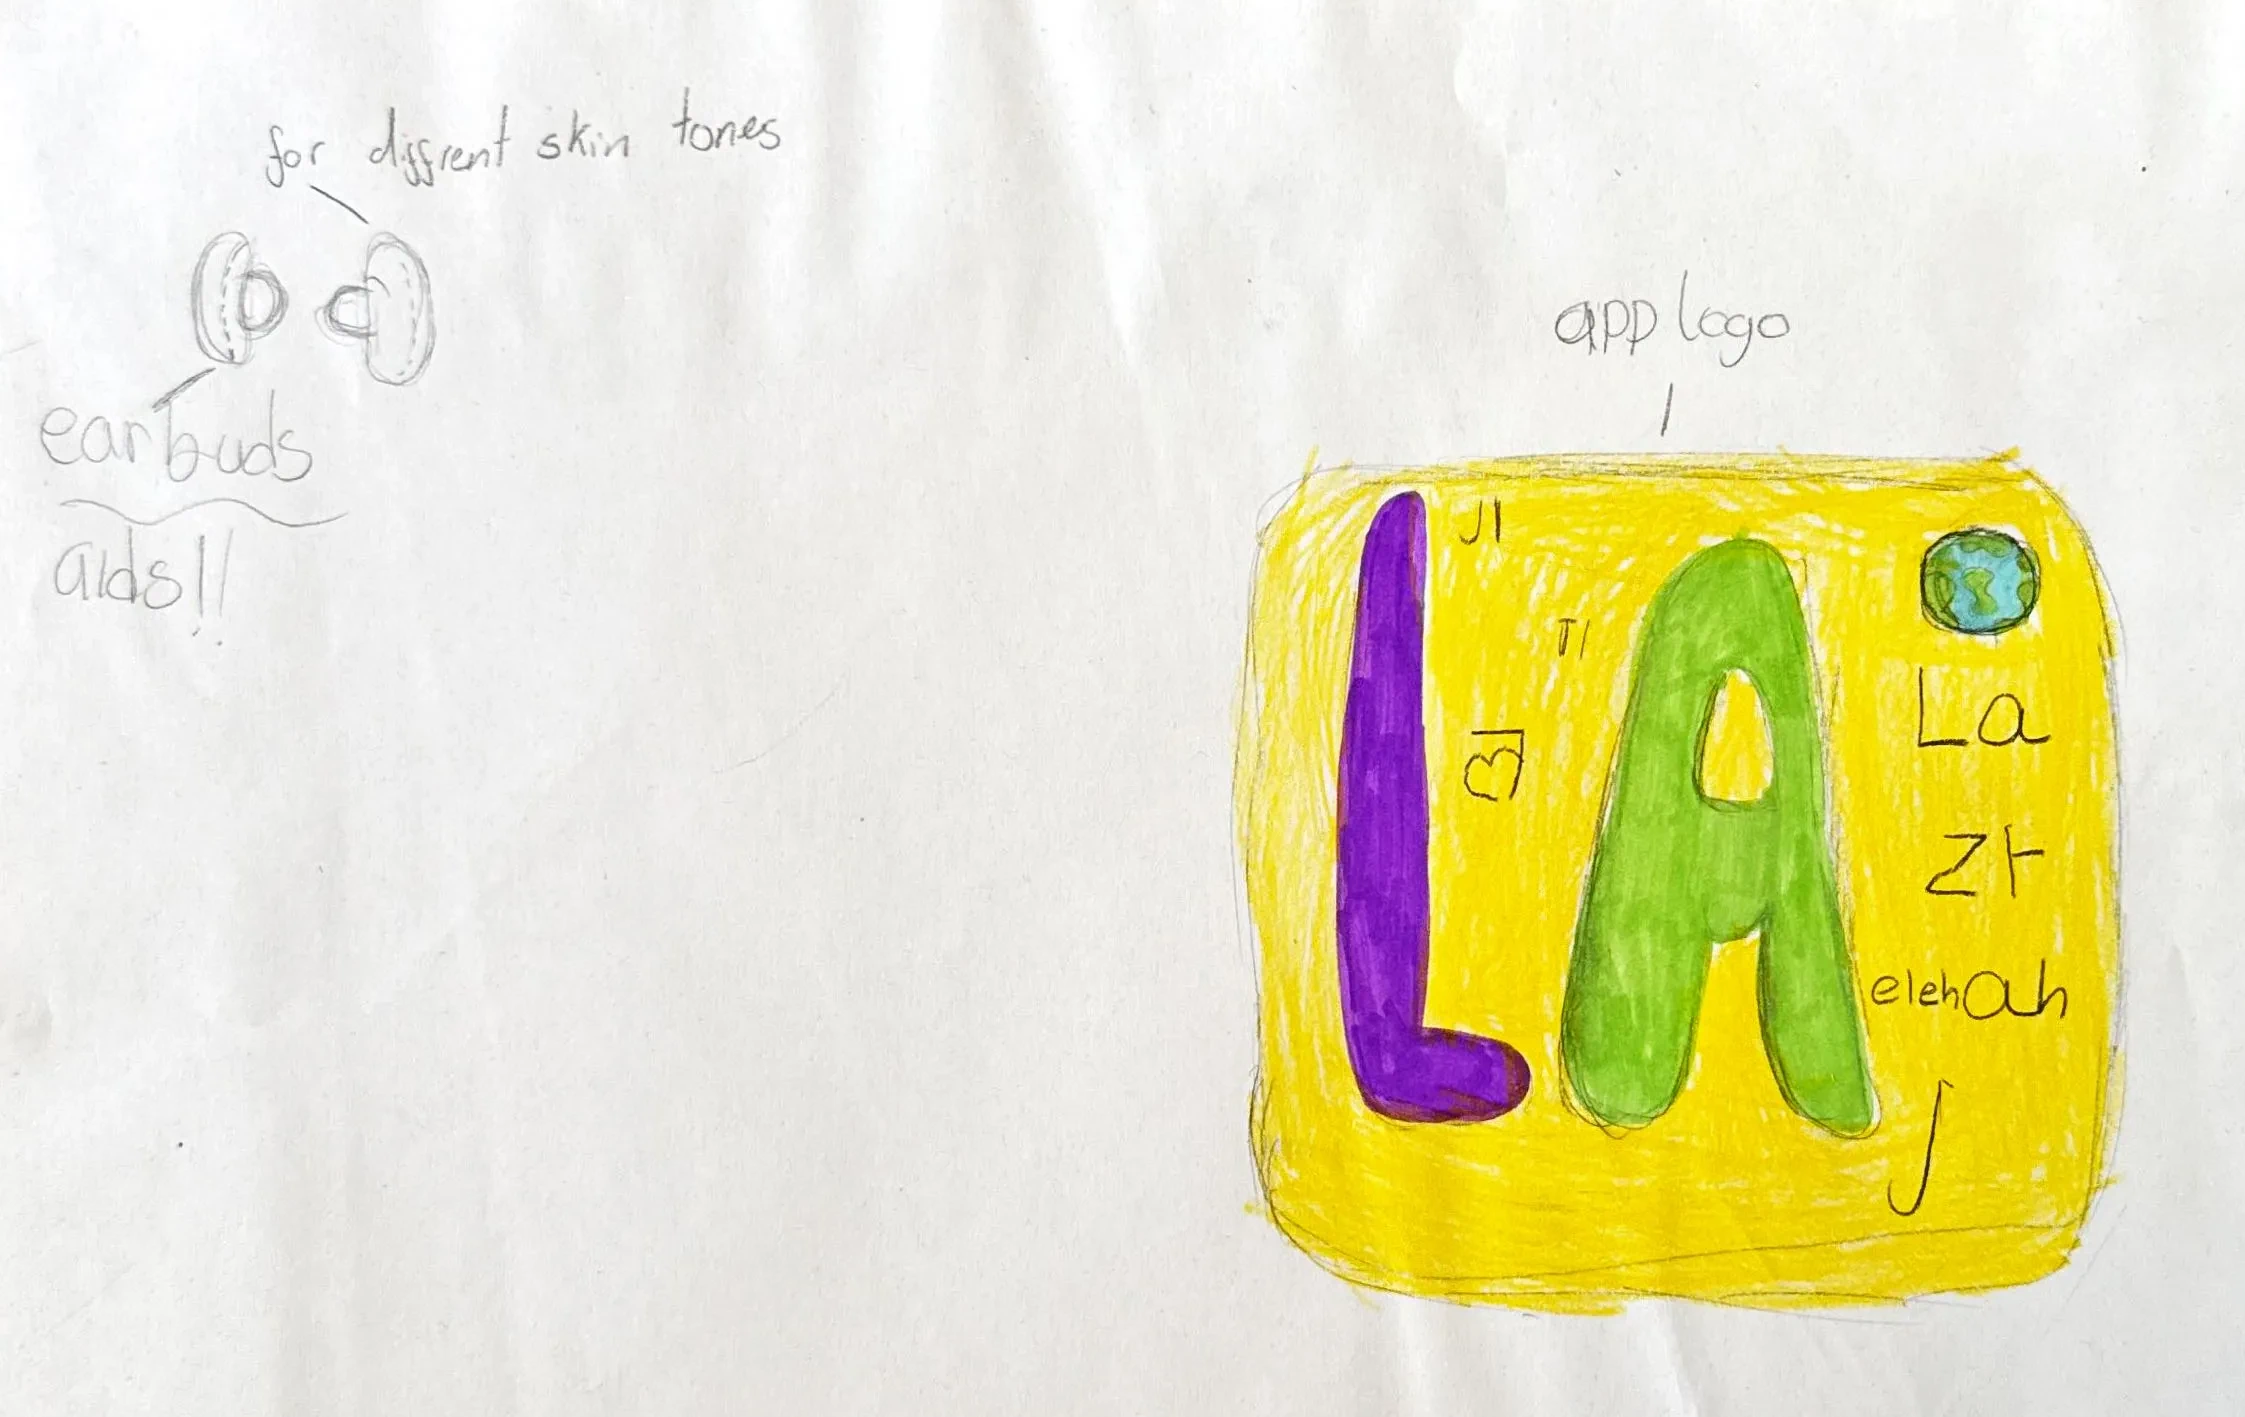 for diffrent skin tones
earbuds
aids!!
app logo
LA
La
elehah